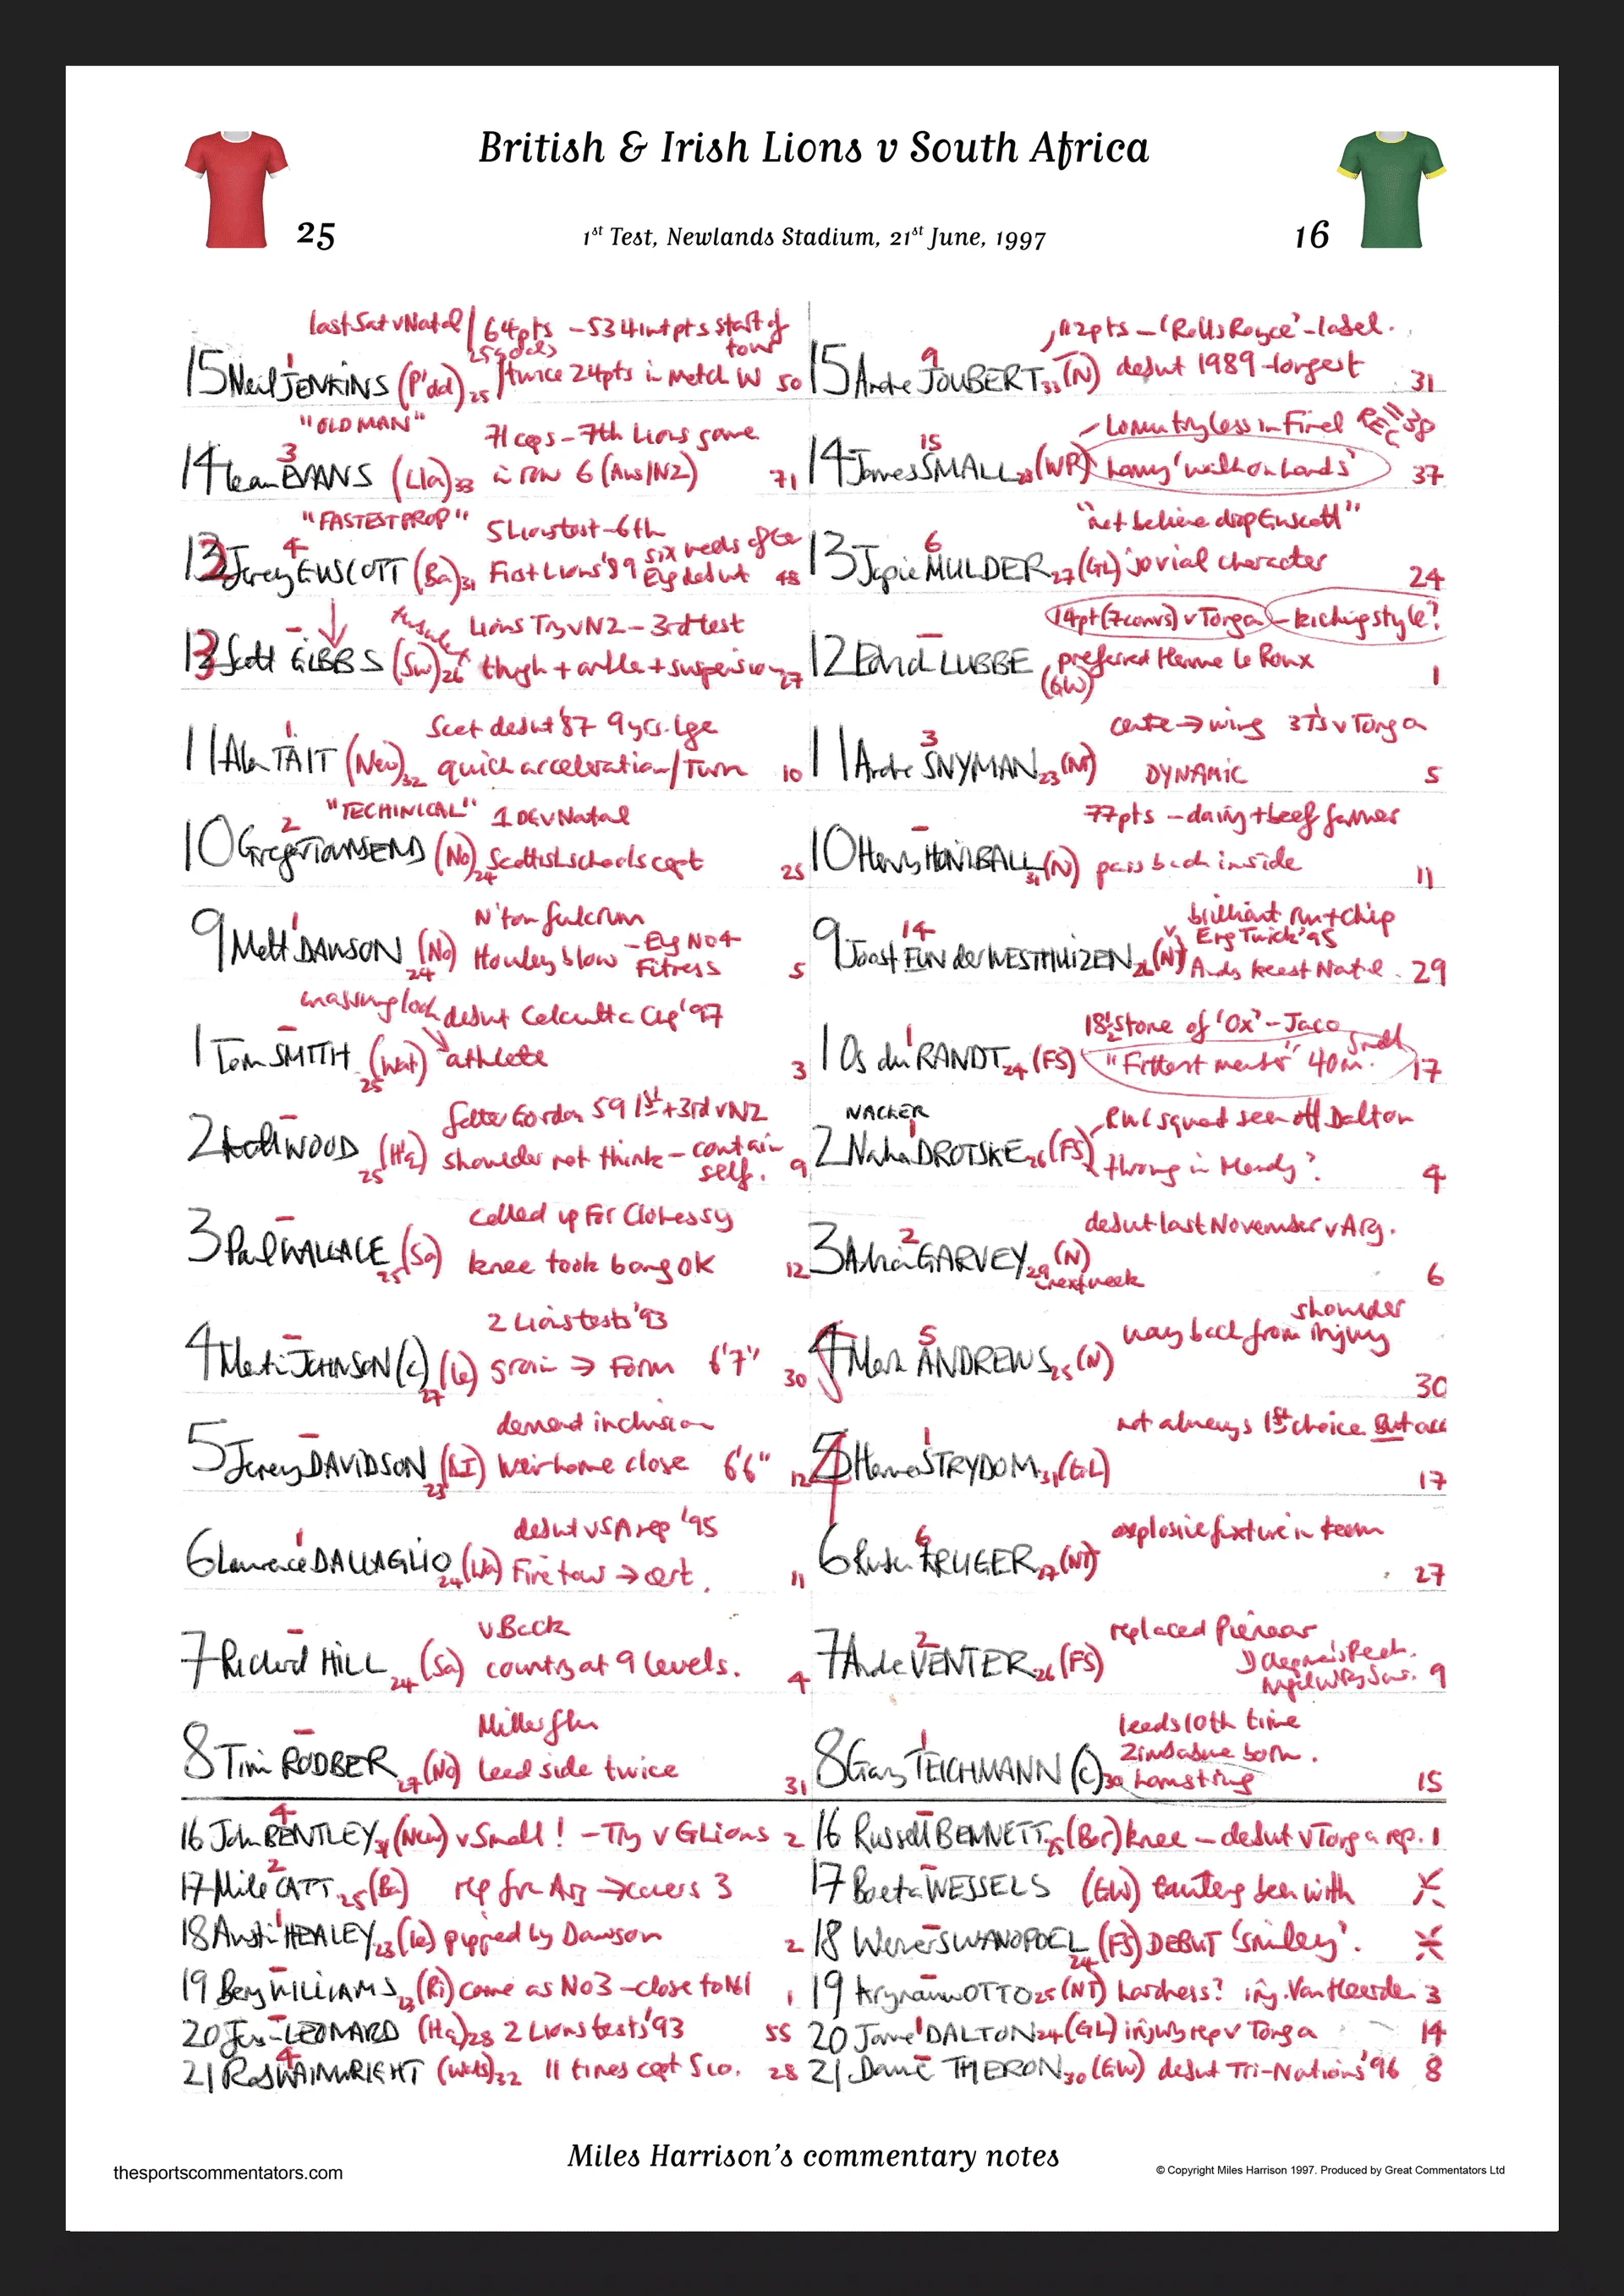 British & Irish Lions v South Africa
25
1st Test, Newlands Stadium, 21st June, 1997
16
last Sat v Natal / 64pts - 534 int pts start of tour
15 Neil JENKINS (P'dd) 25 twice 24pts in match W 50
1
"OLD MAN" 71 caps - 7th Lions game
3
14 Ieuan EVANS (Lla) 33 in row 6 (Aus/NZ) 71
"FASTEST PROP" 5 Lions test - 6th
4
13 Jerey GUSCOTT (Ba) 31 First Lions '89 six weeks after Eng debut 48
Lions Try v NZ - 3rd test
12 Scott GIBBS (Sw) 26 thigh + ankle + suspension 27
Scot debut '87 9yrs. lge
1
11 Alan TAIT (New) 32 quick acceleration / Turn 10
"TECHINICAL" 1 DG v Natal
2
10 Gregor TOWNSEND (No) 24 Scottish schools capt 25
N'ton fulcrum
1
9 Matt DAWSON (No) 24 Howley blow - Eng No 4 Fitness 5
debut Calcutta Cup '97
1 Tom SMITH (Wat) 25 athlete 3
father Gordon 59 1st + 3rd v NZ
2 Keith WOOD (Ha) 25 shoulder not think - contain self. 9
called up for Clohessy
3 Paul WALLACE (Sa) 25 knee took bang OK 12
2 Lions tests '93
4 Martin JOHNSON (c) (Le) 27 groin → Form 6'7" 30
demand inclusion
5 Jerey DAVIDSON (LI) 23 Weir home close 6'6" 12
debut v SA rep '95
1
6 Lawrence DALLAGLIO (Wa) 24 Fire tour → cert. 11
v Back
7 Richard HILL 24 (Sa) country at 9 levels. 4
Miller flu
8 Tim RODBER 27 (No) lead side twice 31
4
16 John BENTLEY 31 (New) v Small! - Try v G Lions 2
2
17 Mike CATT 25 (Ba) rep for Arg → covers 3
1
18 Austin HEALEY 23 (Le) pipped by Dawson 2
19 Barry WILLIAMS 23 (Ri) came as No3 - close to No1 1
20 Jas LEONARD (Ha) 28 2 Lions tests '93 55
4
21 Rob WAINWRIGHT (Wats) 32 11 times capt Sco. 28
112pts - 'Rolls Royce' - label.
9
15 Andre JOUBERT 33 (N) debut 1989 - longest 31
- Lomu tryless in Final REC 38
15
14 James SMALL 28 (WP) 37
"not believe drop Guscott"
6
13 Japie MULDER 27 (GL) jovial character 24
14pt (7 convs) v Tonga - kicking style?
12 Edrich LUBBE (GW) preferred Henne le Roux 1
centre → wing 3 T's v Tonga
3
11 Andre SNYMAN 23 (N) DYNAMIC 5
77pts - dairy + beef farmer
10 Henry HONIBALL 31 (N) pass back inside 11
brilliant run + chip
14 Eng Twick '95
9 Joost VAN der WESTHUIZEN 26 (NT) Andy Keast Natal. 29
18½ stone of 'Ox' - Jaco
1
1 Os du RANDT 24 (FS) "Fittest 40m. 17
NACKER RWC squad sean off Dalton
1
2 Naka DROTSKE 26 (FS) throwing in Hendy? 4
debut last November v Arg.
2
3 Adrian GARVEY 29 (N) next week 6
shoulder
5 way back from injury
4 Mark ANDREWS 25 (N) 30
not always 1st choice But acc
1
5 Hannes STRYDOM 31 (GL) 17
explosive fixture in team
6
6 Ruben KRUGER 27 (NT) 27
replaced Pienaar
2
7 Andre VENTER 26 (FS) 9
leeds 10th time
1 Zimbabwe born.
8 Gary TEICHMANN (c) 30 hamstring 15
16 Russell BENNETT 25 (Bor) knee - debut v Tonga rep. 1
17 Boeta WESSELS (GW) been with
18 Werner SWANOPOEL 24 (FS) DEBUT 'Smiley'.
19 Krynauw OTTO 25 (NT) hardness? inj. Van Heerden 3
1
20 James DALTON 24 (GL) injury rep v Tonga 14
21 Dawie THERON 30 (GW) debut Tri-Nations '96 8
Miles Harrison's commentary notes
thesportscommentators.com
© Copyright Miles Harrison 1997. Produced by Great Commentators Ltd